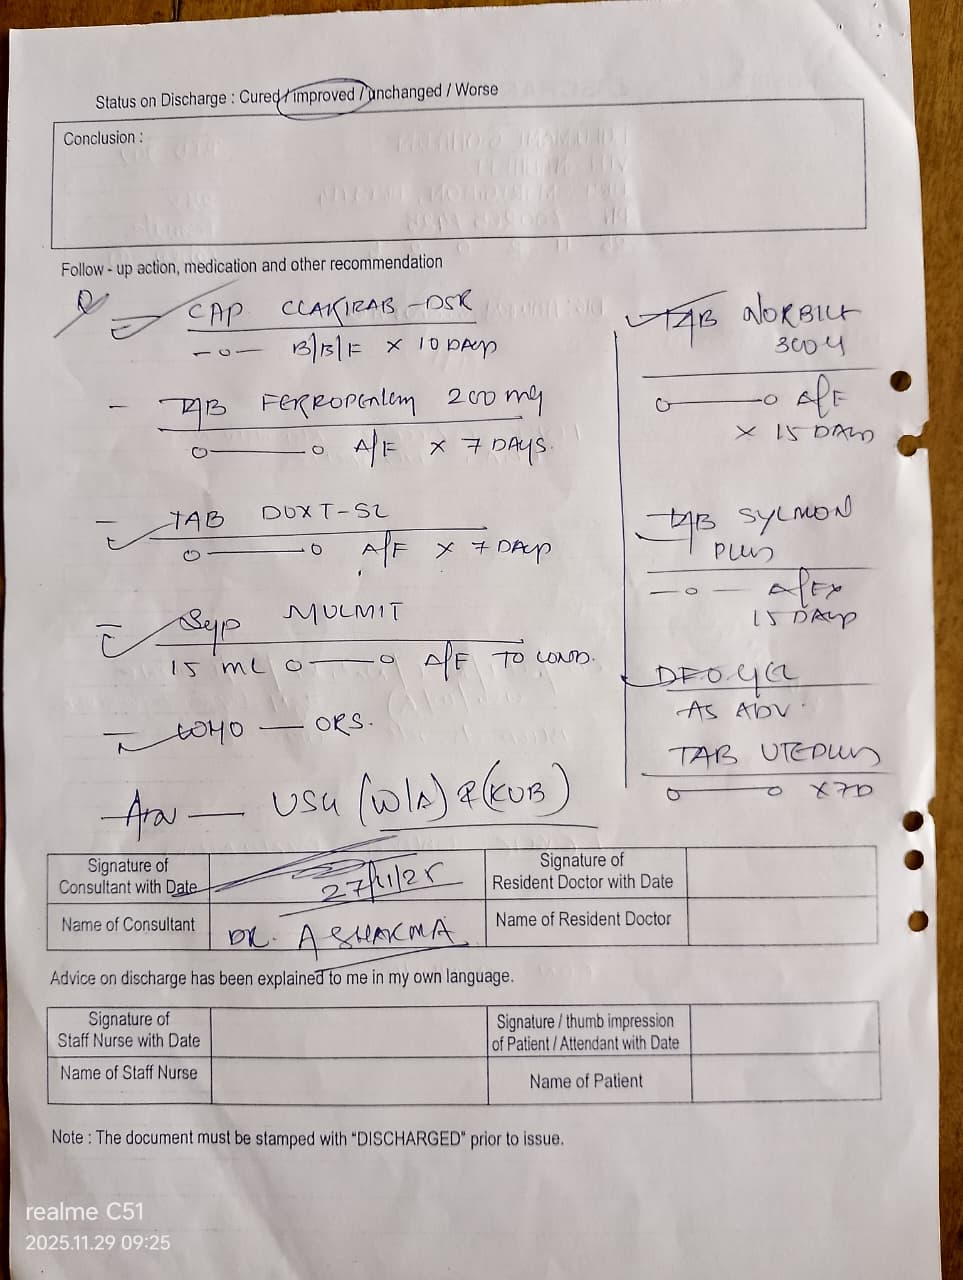 Status on Discharge : Cured / improved / unchanged / Worse
Conclusion :
Follow - up action, medication and other recommendation
CAP CLAKIRAB-DSR
-o- B/B/F x 10 DAYS
- TAB FERROPENEM 200 mg
o——o A/F x 7 DAYS.
- TAB DOXT-SL
o——o A/F x 7 DAYS
- Syp MULMIT
15 ML o——o A/F TO COND.
- WHO — ORS.
Adv — USG (W/A) & (KUB)
TAB NORBILT
300 
o——o A/F
x 15 DAYS
TAB SYLMON
PLUS
-o- A/F x
15 DAYS
AS ADV.
TAB UTEPLUS
o——o x 7D
Signature of
Consultant with Date
27/11/25
Signature of
Resident Doctor with Date
Name of Consultant
DR. A SHARMA
Name of Resident Doctor
Advice on discharge has been explained to me in my own language.
Signature of
Staff Nurse with Date
Signature / thumb impression
of Patient / Attendant with Date
Name of Staff Nurse
Name of Patient
Note : The document must be stamped with "DISCHARGED" prior to issue.
realme C51
2025.11.29 09:25